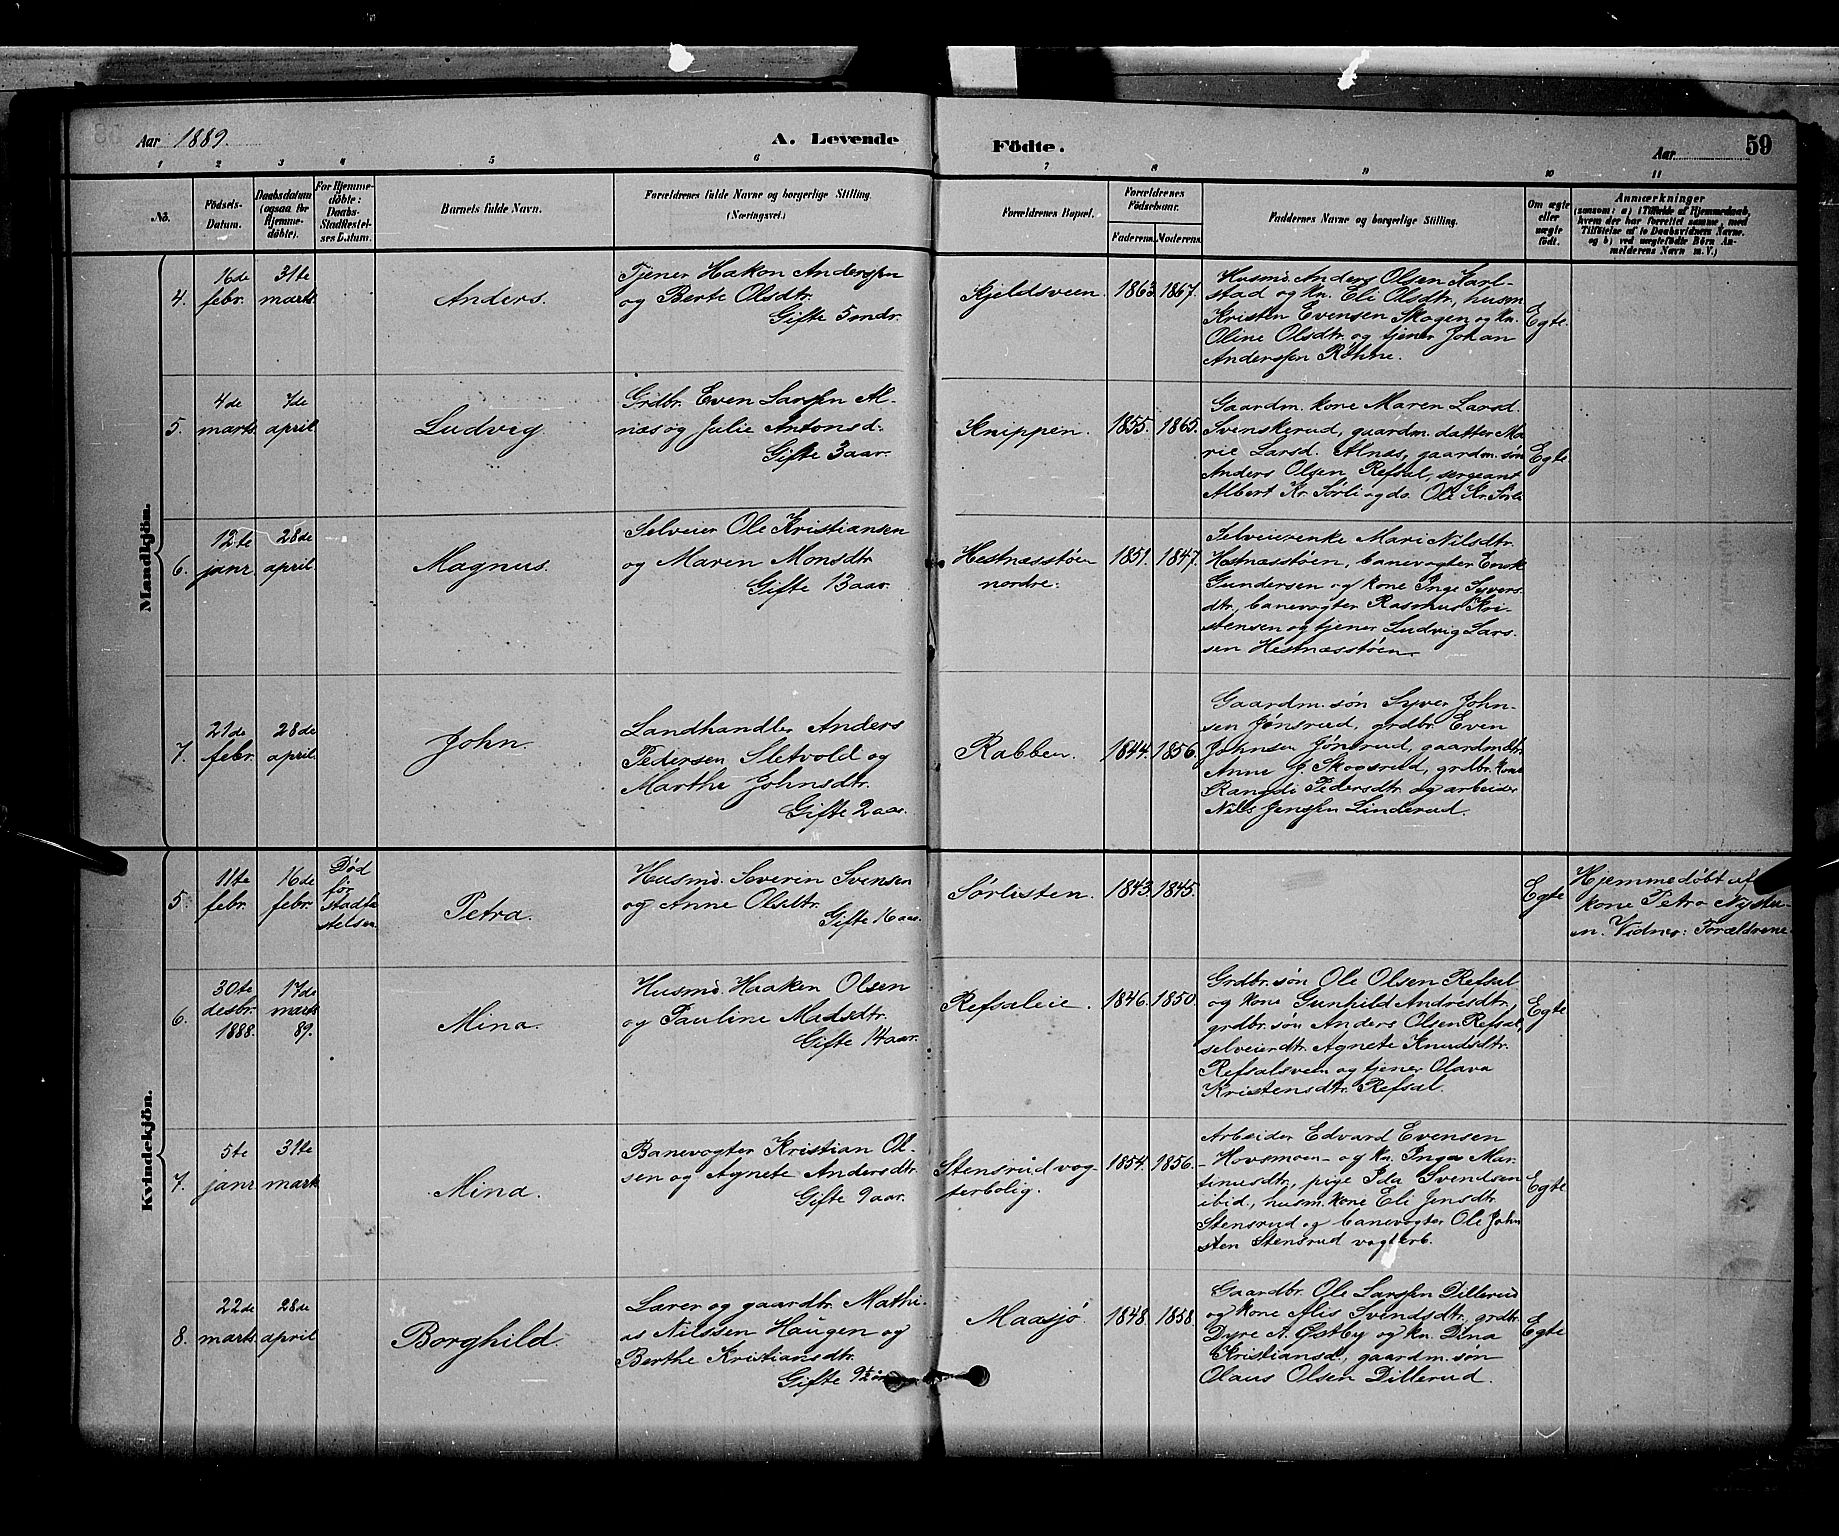 Aar 1889.
A. Levende Födte.
Aar
59
1 2 3 4 5 6 7 8 9 10 11
No.
Födsels-
Datum.
Daabsdatum
(ogsaa for
Hjemme-
döbte).
For Hjemme-
döbte:
Daabs-
Stadfestel-
ses Datum.
Barnets fulde Navn.
Forældrenes fulde Navne og borgerlige Stilling.
(Næringsvei.)
Forældrenes Bopæl.
Forældrenes
Födselsaar.
Faderens.
Moderens.
Faddernes Navne og borgerlige Stilling.
Om ægte
eller
uægte
födt.
Anmærkninger
(saasom: a) i Tilfælde af Hjemmedaab,
hvem der har forrettet samme, med
Tilföielse af to Daabsvidners Navne,
og b) ved uægtefödte Börn An-
melderens Navn m. V.)
Mandkjön.
4.
16de
febr.
31te
marts
Anders.
Tjener Hakon Anderssen
og Berte Olsdtr.
Gifte 5 mdr.
Kjeldsveen.
1863.
1867.
Husmd. Anders Olsen Karl-
stad og kn. Eli Olsdtr, husm
Kristen Evensen Skogen og kn.
Oline Olsdtr. og tjener Johan
Anderssen Røhne.
Egte.
5.
4de
marts
7de
april
Ludvig.
Grdbr. Even Larssen Al-
næs og Julie Antonsd.
Gifte 3 aar.
Knippen.
1855.
1865.
Gaardm. kone Maren Larsd.
Svenskerud, gaardm. datter Ma-
rie Larsd. Alnæs, gaardm. søn
Anders Olsen Refsal, sergeant
Albert Kr. Sørli og do. Ole Kr. Sørli
Egte
6.
12te
janr.
28de
april
Magnus.
Selveier Ole Kristiansen
og Maren Monsdtr.
Gifte 13 aar.
Hestnæsstøen
nordre.
1851.
1847.
Selveierenke Mari Nilsdtr.
Hestnæsstøen, banevogter
Gundersen og kone Inge Syvers-
dtr, banevogter Rasmus Kri-
stensen og tjener Ludvig Lars-
sen Hestnæsstøen.
7.
21de
febr.
28de
april.
John.
Landhandler Anders
Pedersen Sletvold og
Marthe Johnsdtr.
Gifte 2 aar.
Rabben.
1844.
1856.
Gaardm. søn Syver John-
sen Jønsrud, grdbr. Even
Johnsen Jønsrud, gaardmdtr.
Anne J. Skogsrud, grdbr. kone
Rangdi Pedersdtr. og arbeider
Nils Jenssen Linderud.
Kvindekjön.
5.
11te
febr.
16de
febr.
Død
før
stadfæ-
stelsen
Petra.
Husmd. Severin Svensen
og Anne Olsdtr.
Gifte 16 aar.
Sørlisten.
1843.
1845.
Egte
Hjemmedøbt af
kone Petra Nystu-
en. Vidner: Forældrene.
6.
30te
desbr.
1888.
17de
marts
89.
Mina.
Husmd. Haaken Olsen
og Pauline Madsdtr.
Gifte 14 aar.
Refsaleie.
1846.
1850.
Grdbr. søn Ole Olsen Refsal
og kone Gunhild Andresdtr,
grdbr. søn Anders Olsen Refsal,
selveierdtr. Agnete Knudsdtr.
Refsalsveen og tjener Olava
Kristensdtr. Refsal.
Egte
7.
5te
janr
31te
marts
Mina.
Banevogter Kristian Ol-
sen og Agnete Andersdtr.
Gifte 9 aar.
Stensrud vog-
terbolig.
1854.
1856.
Arbeider Edvard Evensen
Hovsmoen og kn. Inga Mar-
tinusdtr, pige Ida Svendsen
ibid., husm. kone Eli Jensdtr.
Stensrud og banevogter Ole John-
sen Stensrud vogterb.
Egte
8.
22de
marts.
28de
april
Borghild.
Lærer og gaardbr. Mathi-
as Nilssen Haugen og
Berthe Kristiansdtr.
Gifte 9½ aar
Maasjø
1848.
1858.
Gaardbr. Ole Larssen Dillerud
og kone Alis Svendsdtr, grdbr.
Dyre A. Østby og kn. Dina
Kristiansd., gaardm. søn
Olaus Olsen Dillerud.
Egte